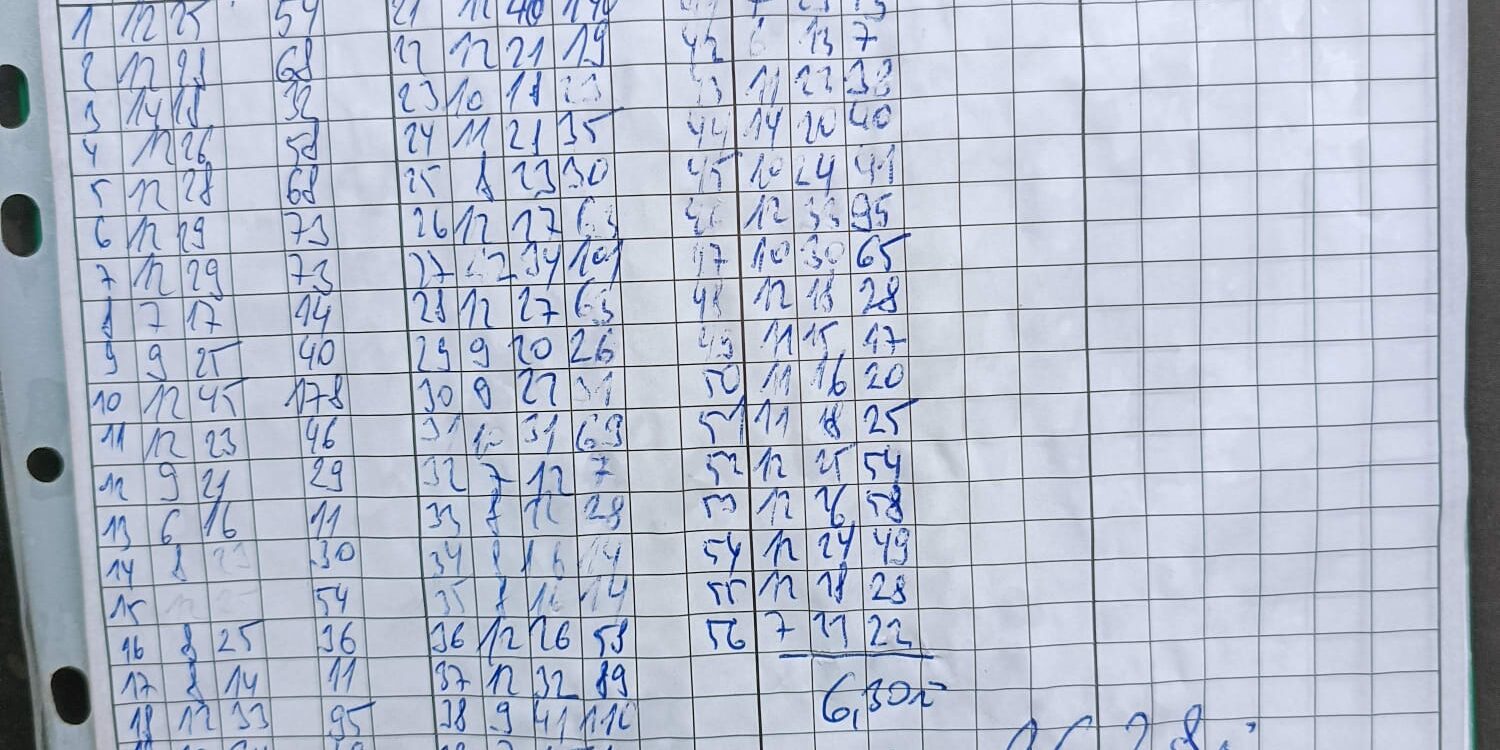 1 12 25 54 21 12 40 140
2 12 28 68 22 12 21 19 42 6 13 7
3 14 18 32 23 10 18 23 43 11 22 38
4 12 26 58 24 11 21 35 44 14 20 40
5 12 28 68 25 8 23 30 45 10 24 41
6 12 29 73 26 12 27 63 46 12 33 95
7 12 29 73 27 12 34 101 47 10 30 65
8 7 17 14 28 12 27 63 48 12 18 28
9 9 25 40 29 9 20 26 49 11 15 17
10 12 45 178 30 9 22 31 50 11 16 20
11 12 23 46 31 10 31 69 51 11 18 25
12 9 21 29 32 7 12 7 52 12 25 54
13 6 16 11 33 8 28 53 12 26 58
14 8 23 30 34 8 16 14 54 12 24 49
15 12 25 54 35 8 16 14 55 12 18 28
16 8 25 36 36 12 26 58 56 7 21 22
17 8 14 11 37 12 32 89
18 12 33 95 38 9 41 116 6,305